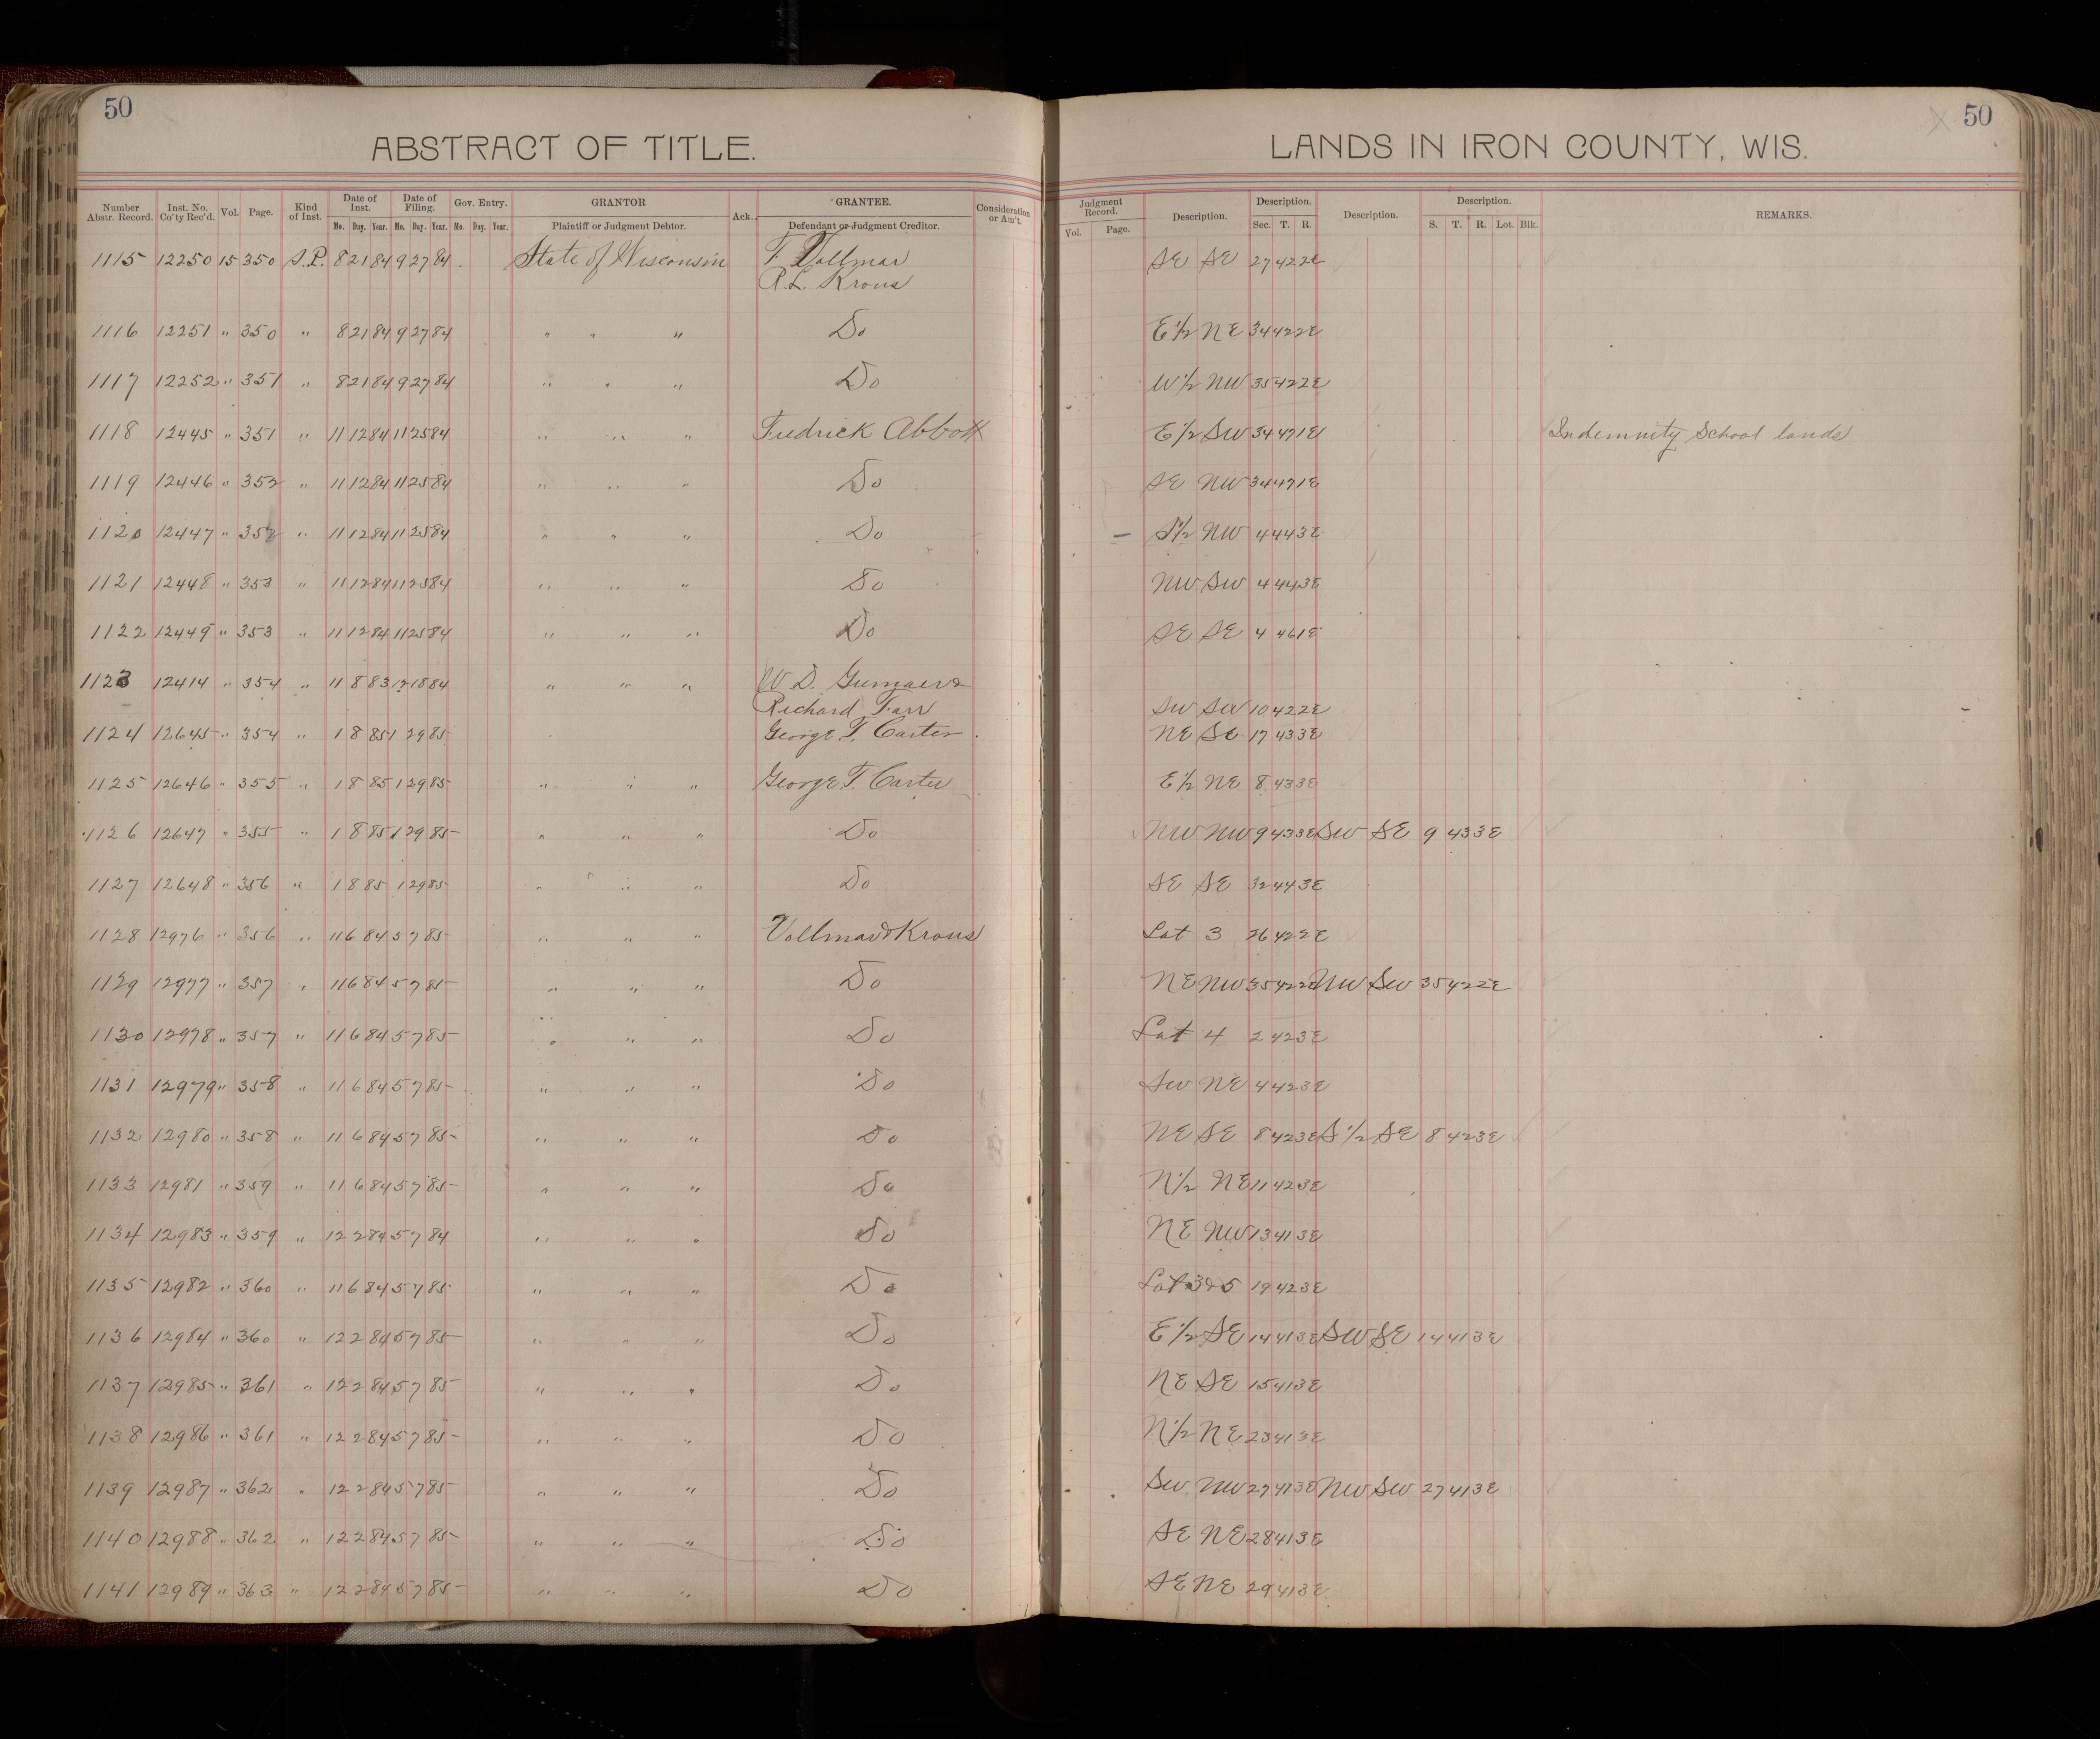 50
ABSTRACT OF TITLE.
LANDS IN IRON COUNTY, WIS.
50
Number Abstr. Record. Inst. No. Co'ty Rec'd. Vol. Page. Kind of Inst. Date of Inst. Date of Filing. Gov. Entry. GRANTOR Ack. GRANTEE. Consideration or Am't. Judgment Record. Description. Description. Description. Description. REMARKS.
Mo. Day. Year. Mo. Day. Year. Mo. Day. Year. Plaintiff or Judgment Debtor. Defendant or Judgment Creditor. Vol. Page. Sec. T. R. S. T. R. Lot. Blk.
1115 12250 15 350 S.P. 8 21 84 9 27 84 State of Wisconsin F. Vollmar SE SE 27 42 2E
R.L. Krous
1116 12251 " 350 " 8 21 84 9 27 84 " " " Do E½ NE 34 42 2E
1117 12252 " 351 " 8 21 84 9 27 84 " " " Do W½ NW 35 42 2E
1118 12445 " 351 " 11 12 84 11 25 84 " " " Fredrick Abbott E½ SW 34 47 1E Indemnity School lands
1119 12446 " 352 " 11 12 84 11 25 84 " " " Do SE NW 34 47 1E
1120 12447 " 352 " 11 12 84 11 25 84 " " " Do S½ NW 4 44 3E
1121 12448 " 353 " 11 12 84 11 25 84 " " " Do NW SW 4 44 3E
1122 12449 " 353 " 11 12 84 11 25 84 " " " Do SE SE 4 46 1E
1123 12414 " 354 " 11 8 83 12 18 84 " " " W D. Gumaer &
Richard Farr SW SW 10 42 2E
1124 12645 " 354 " 1 8 85 1 29 85 George F. Carter NE SE 17 43 3E
1125 12646 " 355 " 1 8 85 1 29 85 " " " George F. Carter E½ NE 8 43 3E
1126 12647 " 355 " 1 8 85 1 29 85 " " " Do NW NW 9 43 3E SW SE 9 43 3E
1127 12648 " 356 " 1 8 85 1 29 85 " " " Do SE SE 32 44 3E
1128 12976 " 356 " 11 6 84 5 7 85 " " " Vollmar & Krous Lot 3 26 42 2E
1129 12977 " 357 " 11 6 84 5 7 85 " " " Do NE NW 35 42 2E NW SW 35 42 2E
1130 12978 " 357 " 11 6 84 5 7 85 " " " Do Lot 4 2 42 3E
1131 12979 " 358 " 11 6 84 5 7 85 " " " Do SW NE 4 42 3E
1132 12980 " 358 " 11 6 84 5 7 85 " " " Do NE SE 8 42 3E S½ SE 8 42 3E
1133 12981 " 359 " 11 6 84 5 7 85 " " " Do N½ NE 11 42 3E
1134 12983 " 359 " 12 2 84 5 7 84 " " " Do NE NW 13 41 3E
1135 12982 " 360 " 11 6 84 5 7 85 " " " Do Lot 3 & 5 19 42 3E
1136 12984 " 360 " 12 2 84 5 7 85 " " " Do E½ SE 14 41 3E SW SE 14 41 3E
1137 12985 " 361 " 12 2 84 5 7 85 " " " Do NE SE 15 41 3E
1138 12986 " 361 " 12 2 84 5 7 85 " " " Do N½ NE 23 41 3E
1139 12987 " 362 " 12 2 84 5 7 85 " " " Do SW NW 27 41 3E NW SW 27 41 3E
1140 12988 " 362 " 12 2 84 5 7 85 " " " Do SE NE 28 41 3E
1141 12989 " 363 " 12 2 84 5 7 85 " " " Do SE NE 29 41 3E